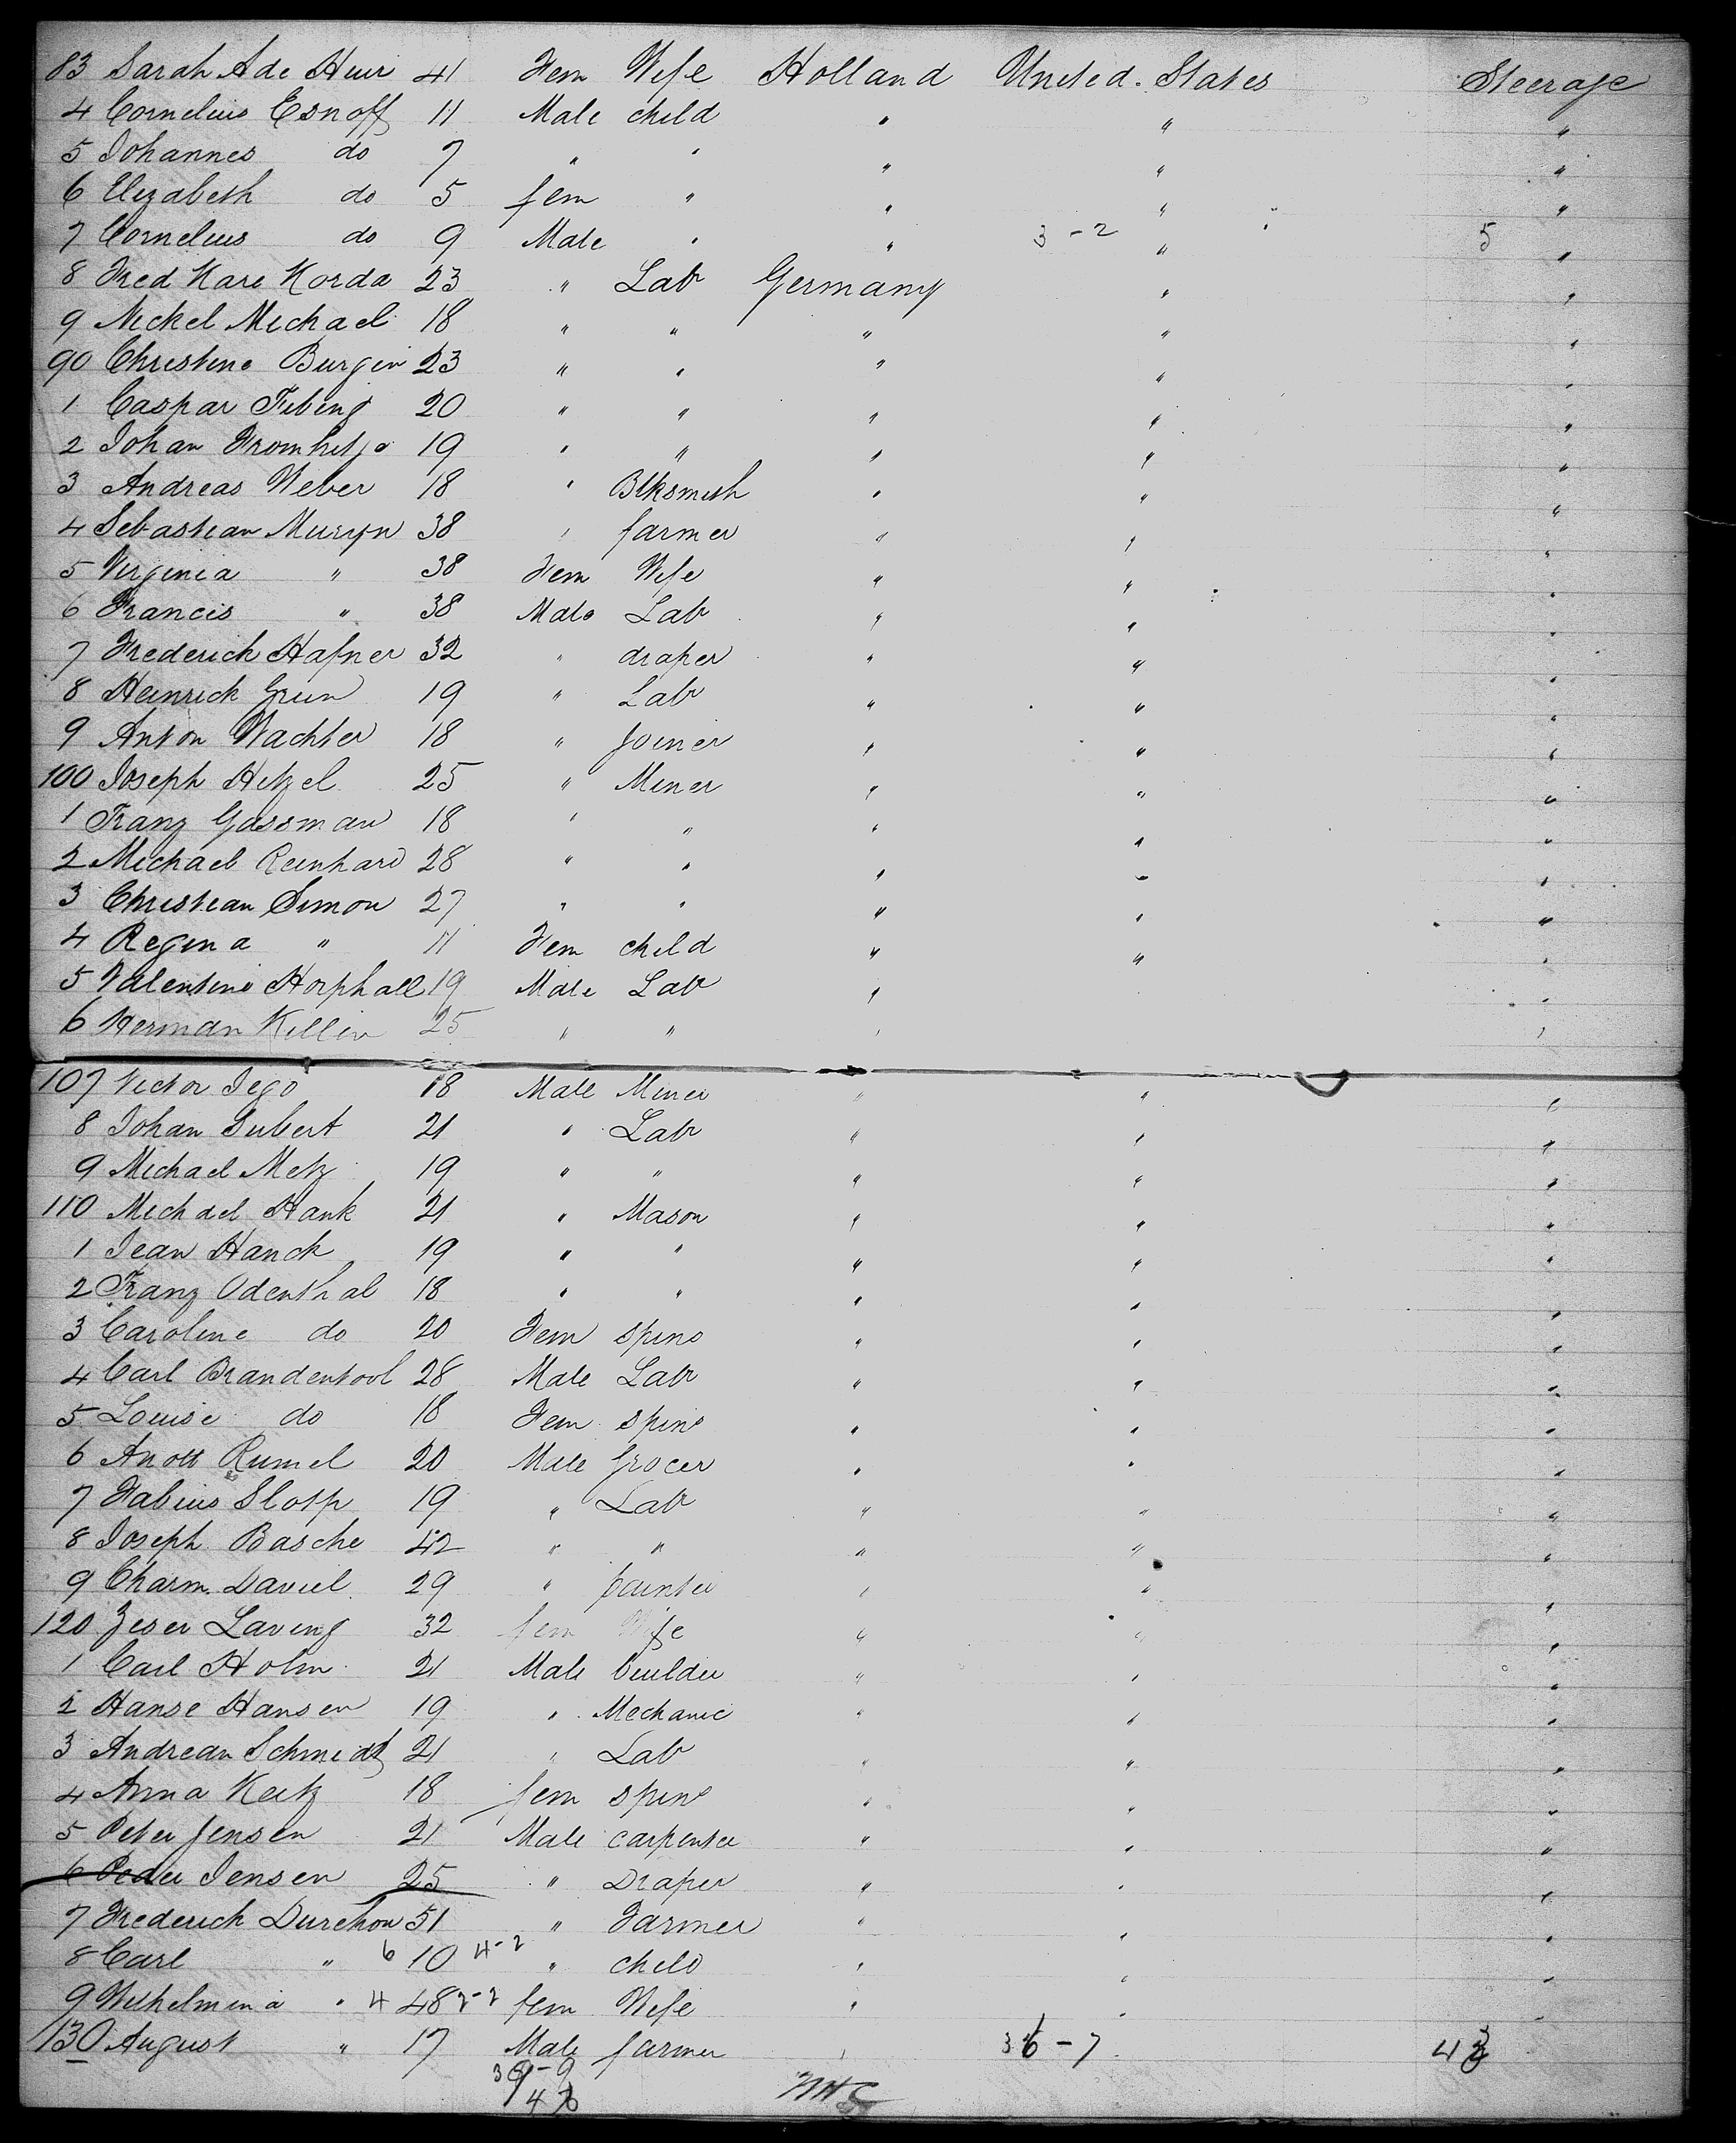 83 Sarah Ade Huir 41 Fem Wife Holland United States Steerage
4 Cornelius Esnoff 11 Male child " " "
5 Johannes do 7 " " " " "
6 Elizabeth do 5 fem " " " "
7 Cornelius do 9 Male " " 3-2 " 5 "
8 Fred Kare Korda 23 " Lab Germany " "
9 Nickel Michael 18 " " " " "
90 Christine Burgin 23 " " " " "
1 Caspar Fubing 20 " " " " "
2 Johan 19 " " " " "
3 Andreas Weber 18 " Blksmith " " "
4 Sebastian Muryn 38 " farmer " " "
5 Virginia " 38 Fem Wife " " "
6 Francis " 38 Male Lab " " "
7 Frederich Hafner 32 " draper " " "
8 Heinrich Grun 19 " Lab " " "
9 Anton Wachter 18 " Joiner " " "
100 Joseph Hetzel 25 " Miner " " "
1 Franz Gassman 18 " " " " "
2 Michael Reinhard 28 " " " " "
3 Christian Simon 27 " " " " "
4 Regina " 11 Fem child " " "
5 Valentine Horphall 19 Male Lab " "
6 Herman Killin 25 " " " "
107 Victor Jego 18 Male Miner " " "
8 Johan Subert 21 " Lab " " "
9 Michael Metz 19 " " " " "
110 Michael Hank 21 " Mason " " "
1 Jean Hanck 19 " " " " "
2 Franz Odenthal 18 " " " " "
3 Caroline do 20 Fem spins " " "
4 Carl Brandentool 28 Male Lab " " "
5 Louise do 18 Fem spins " " "
6 Anott Rumel 20 Male Grocer " " "
7 Fabius Slotp 19 " Lab " " "
8 Joseph Basche 42 " " " " "
9 Charm Daviel 29 " painter " " "
120 Zeser Laving 32 fem Wife " " "
1 Carl Holm 21 Male builder " " "
2 Hanse Hansen 19 " Mechanic " " "
3 Andrean Schmidt 21 " Lab " " "
4 Anna Keitz 18 fem spins " " "
5 Peter Jensen 21 Male carpenter " " "
6 Peder Jensen 25 " Draper " " "
7 Frederich Durchow 51 " Farmer " " "
8 Carl " 6 10 4-2 " child " " "
9 Wilhelmina " 4 48 2-2 fem Wife " " "
130 August " 17 Male farmer " 36-7 43
39-9